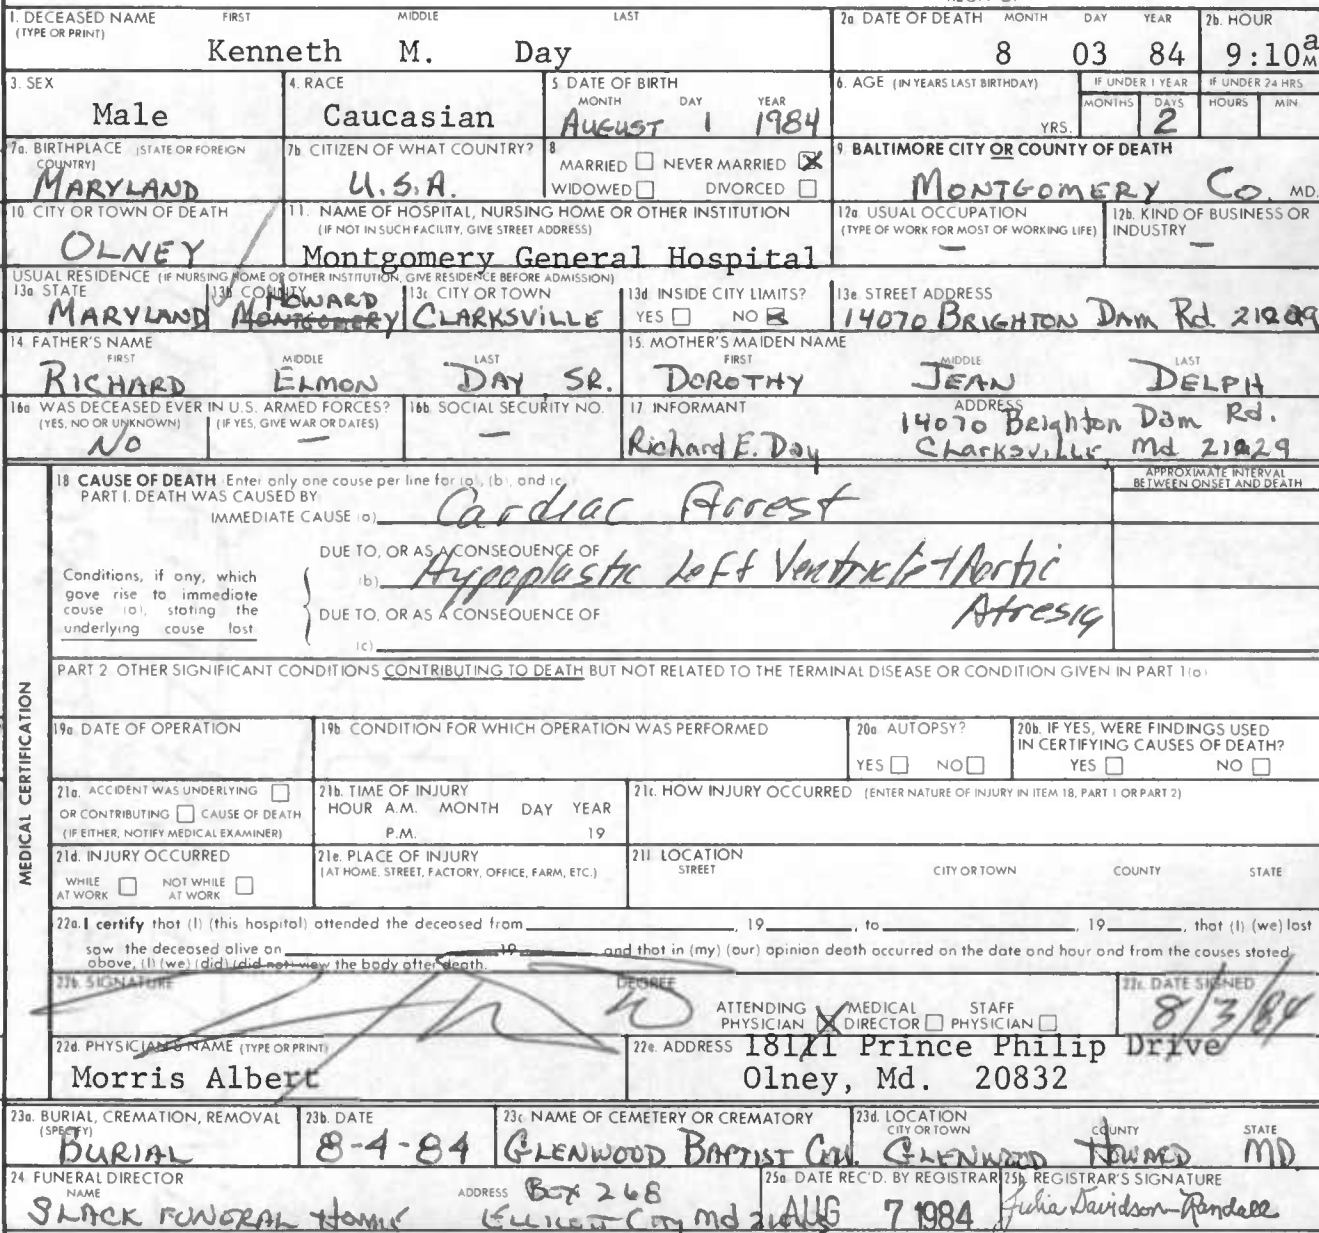 1. DECEASED NAME FIRST MIDDLE LAST
(TYPE OR PRINT)
Kenneth M. Day
2a DATE OF DEATH MONTH DAY YEAR
8 03 84
2b. HOUR
9:10 a M
3. SEX
Male
4. RACE
Caucasian
5 DATE OF BIRTH
MONTH DAY YEAR
AUGUST 1 1984
6. AGE (IN YEARS LAST BIRTHDAY)
YRS.
IF UNDER 1 YEAR
MONTHS DAYS
2
IF UNDER 24 HRS
HOURS MIN
7a. BIRTHPLACE (STATE OR FOREIGN
COUNTRY)
MARYLAND
7b CITIZEN OF WHAT COUNTRY?
U.S.A.
8
MARRIED NEVER MARRIED
WIDOWED DIVORCED
9. BALTIMORE CITY OR COUNTY OF DEATH
MONTGOMERY CO. MD.
10. CITY OR TOWN OF DEATH
OLNEY
11. NAME OF HOSPITAL, NURSING HOME OR OTHER INSTITUTION
(IF NOT IN SUCH FACILITY, GIVE STREET ADDRESS)
Montgomery General Hospital
12a. USUAL OCCUPATION
(TYPE OF WORK FOR MOST OF WORKING LIFE)
—
12b. KIND OF BUSINESS OR
INDUSTRY
—
USUAL RESIDENCE (IF NURSING HOME OR OTHER INSTITUTION, GIVE RESIDENCE BEFORE ADMISSION)
13a STATE
MARYLAND
13b COUNTY
HOWARD
MONTGOMERY
13c CITY OR TOWN
CLARKSVILLE
13d INSIDE CITY LIMITS?
YES NO
13e. STREET ADDRESS
14070 BRIGHTON DAM Rd 21029
14 FATHER'S NAME
FIRST MIDDLE LAST
RICHARD ELMON DAY SR.
15. MOTHER'S MAIDEN NAME
FIRST MIDDLE LAST
DOROTHY JEAN DELPH
16a WAS DECEASED EVER IN U.S. ARMED FORCES?
(YES, NO OR UNKNOWN) (IF YES, GIVE WAR OR DATES)
NO —
16b SOCIAL SECURITY NO.
—
17 INFORMANT
Richard E. Day
ADDRESS
14070 Brighton Dam Rd.
Clarksville, Md 21029
18 CAUSE OF DEATH Enter only one cause per line for (a), (b), and (c)
PART I. DEATH WAS CAUSED BY
IMMEDIATE CAUSE (a) Cardiac Arrest
APPROXIMATE INTERVAL
BETWEEN ONSET AND DEATH
Conditions, if any, which
gave rise to immediate
cause (a), stating the
underlying cause last
DUE TO, OR AS A CONSEQUENCE OF
(b) Hypoplastic Left Ventricle + Aortic
Atresia
DUE TO, OR AS A CONSEQUENCE OF
(c)
PART 2 OTHER SIGNIFICANT CONDITIONS CONTRIBUTING TO DEATH BUT NOT RELATED TO THE TERMINAL DISEASE OR CONDITION GIVEN IN PART 1(a)
MEDICAL CERTIFICATION
19a DATE OF OPERATION
19b CONDITION FOR WHICH OPERATION WAS PERFORMED
20a AUTOPSY?
YES NO
20b. IF YES, WERE FINDINGS USED
IN CERTIFYING CAUSES OF DEATH?
YES NO
21a. ACCIDENT WAS UNDERLYING
OR CONTRIBUTING CAUSE OF DEATH
(IF EITHER, NOTIFY MEDICAL EXAMINER)
21b. TIME OF INJURY
HOUR A.M. MONTH DAY YEAR
P.M. 19
21c. HOW INJURY OCCURRED (ENTER NATURE OF INJURY IN ITEM 18, PART 1 OR PART 2)
21d. INJURY OCCURRED
WHILE NOT WHILE
AT WORK AT WORK
21e. PLACE OF INJURY
(AT HOME, STREET, FACTORY, OFFICE, FARM, ETC.)
21f LOCATION
STREET CITY OR TOWN COUNTY STATE
22a. I certify that (I) (this hospital) attended the deceased from , 19 , to , 19 , that (I) (we) last
saw the deceased alive on 19 and that in (my) (our) opinion death occurred on the date and hour and from the causes stated
above, (I) (we) (did) (did not) view the body after death.
22b. SIGNATURE DEGREE
ATTENDING MEDICAL STAFF
PHYSICIAN DIRECTOR PHYSICIAN
22c. DATE SIGNED
8/3/84
22d. PHYSICIAN'S NAME (TYPE OR PRINT)
Morris Albert
22e. ADDRESS 18111 Prince Philip Drive
Olney, Md. 20832
23a. BURIAL, CREMATION, REMOVAL
(SPECIFY)
BURIAL
23b. DATE
8-4-84
23c NAME OF CEMETERY OR CREMATORY
GLENWOOD BAPTIST CEM.
23d. LOCATION
CITY OR TOWN COUNTY STATE
GLENWOOD HOWARD MD
24 FUNERAL DIRECTOR
NAME ADDRESS
SLACK FUNERAL HOME Box 268
ELLICOTT CITY Md
25a DATE REC'D. BY REGISTRAR
AUG 7 1984
25b REGISTRAR'S SIGNATURE
Julia Davidson-Randall